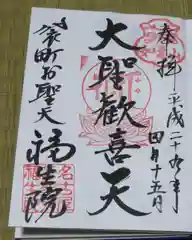 奉拝
平成二十九年
四月十五日
大聖歓喜天
袋町お聖天
福生院